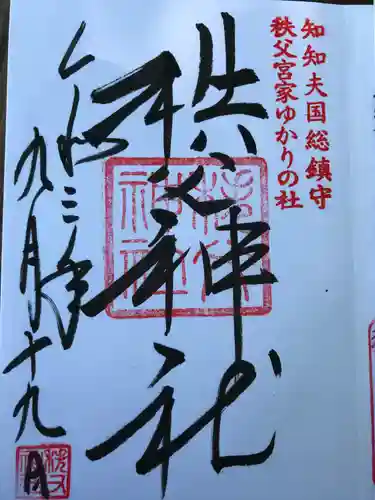 知知夫国総鎮守
秩父宮家ゆかりの社
秩父神社
令和三年
九月十九